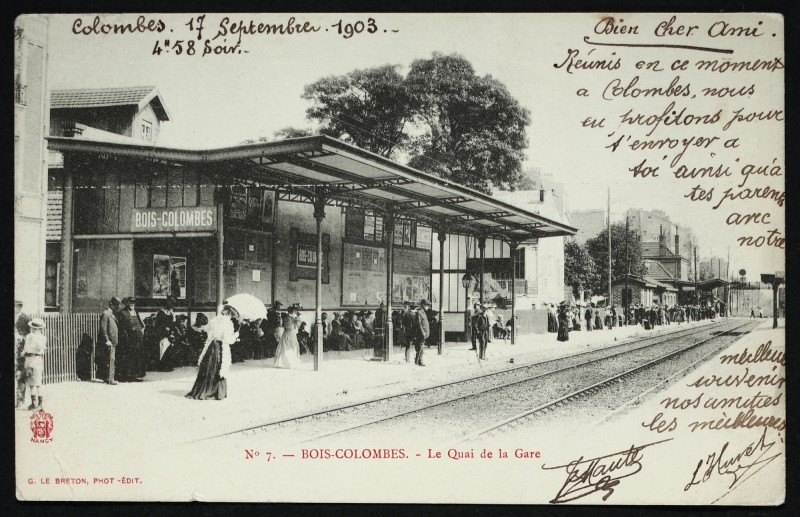 Colombes. 17 Septembre. 1903.-
4h 58 Soir.-
Bien Cher Ami.
Réunis en ce moment
a Colombes, nous
en profitons pour
t'envoyer a
toi ainsi qu'a
tes parents
avec
notre
meilleur
souvenir
nos amitiés
les meilleures
BOIS-COLOMBES
BOIS-COLOMBES
NANCY
No 7. — BOIS-COLOMBES. - Le Quai de la Gare
G. LE BRETON, PHOT-ÉDIT.